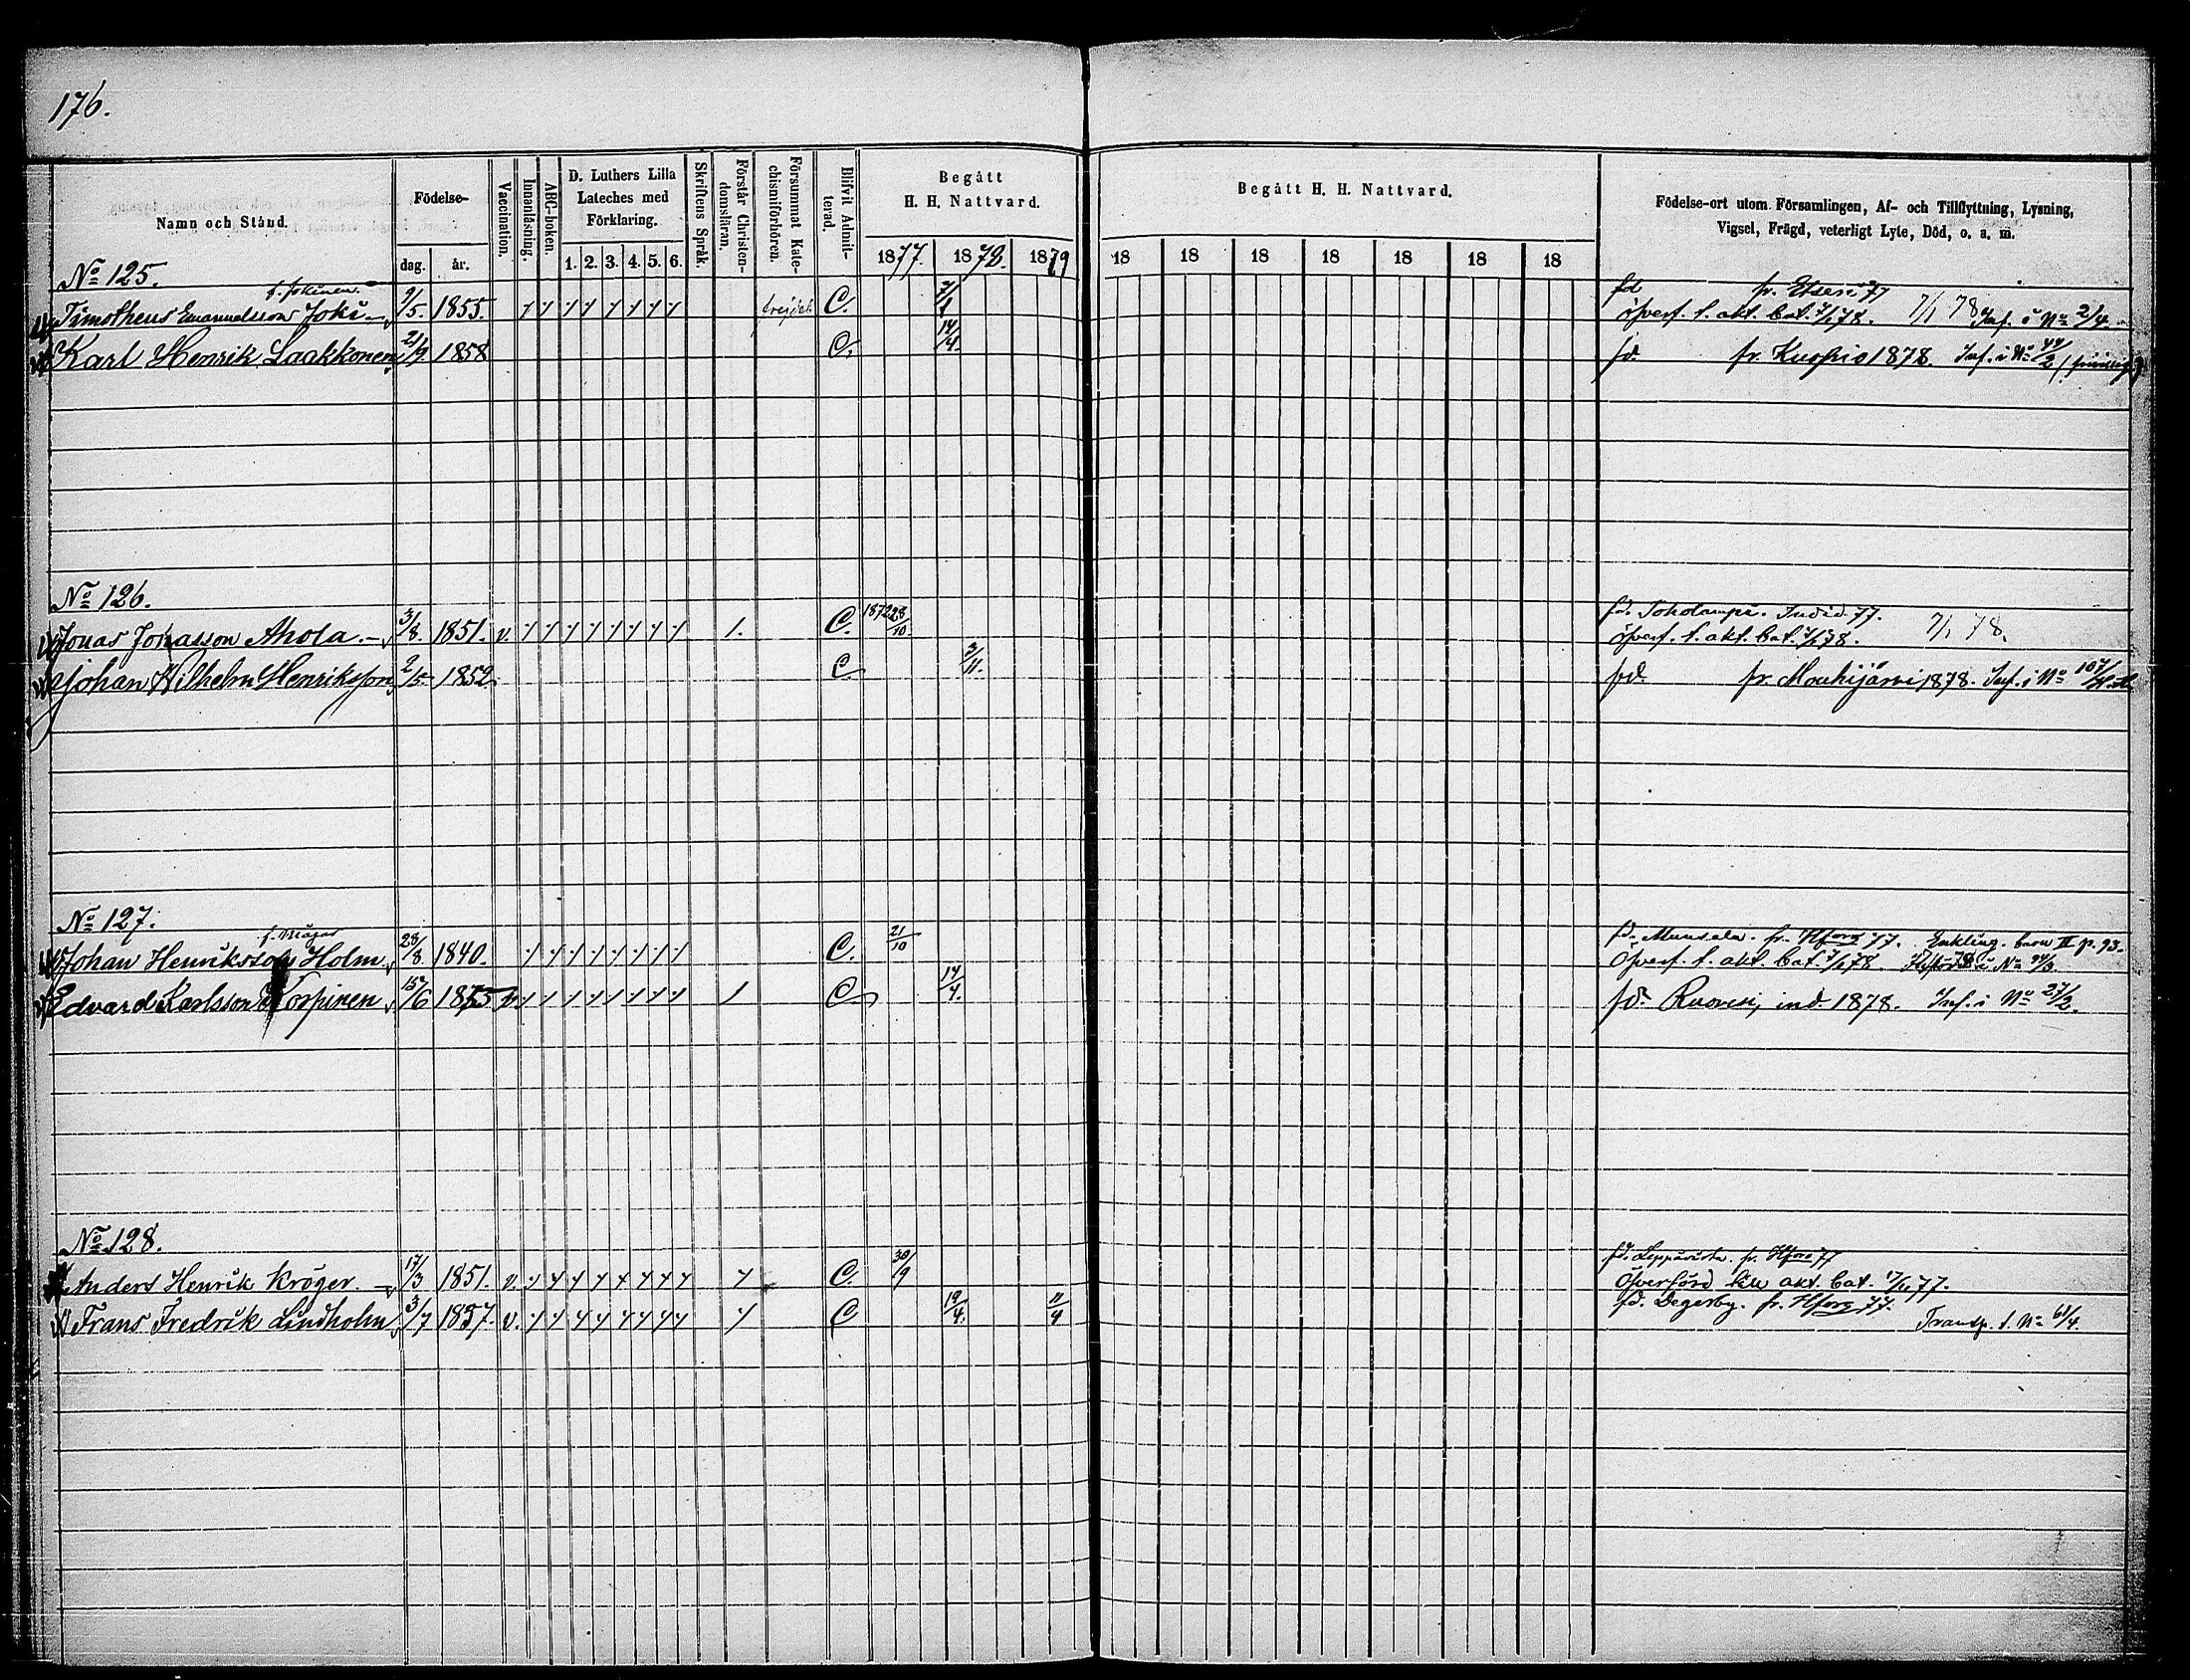 176.
Namn och Stånd.
Födelse-
dag. år.
Vaccination.
Innanläsning.
ABC-boken.
D. Luthers Lilla
Lateches med
Förklaring.
1. 2. 3. 4. 5. 6.
Skriftens Språk.
Förstår Christen-
domsläran.
Försummat Kate-
chismiförhören.
Blifvit Admit-
terad.
Begått
H. H. Nattvard.
1877. 1878. 1879
Begått H. H. Nattvard.
18 18 18 18 18 18 18
Födelse-ort utom Församlingen, Af- och Tillflyttning, Lysning,
Vigsel, Frägd, veterligt Lyte, Död, o. a. m.
No 125.
f. Jokinen
Timotheus Emanuelsson Joki 9/5. 1855. frejdeb. C. 7/1 fd fr. Etseri 77
öfverf. t. akt. bat. 7/1 78. 7/1 78 Inf. i No 2/4.
Karl Henrik Laakkonen 21/9 1858 C. 14/4. fd. fr. Kuopio 1878. Inf. i No 44/2
No 126.
Jonas Jonasson Ahola. 3/8. 1851. v. 1. C. 1872 28/10. fd. Toholampi. Indid. 77.
öfverf. t. akt. bat. 7/1 78. 7/1 78.
Johan Wilhelm Henriksson 2/5 1852 C 3/11. fd. fr. Mouhijärvi 1878. Inf. i No 107/
No 127.
Johan Henriksson Holm 28/8 1840. C. 21/10 fd. Munsala. fr. Hfors 77. Enkling. barn II p. 93.
Öfverf. t. akt. bat. 7/1 78.
Edvard Karlsson Korpinen 15/6 1855 v. 1 C 14/4. fd. Ruovesi, ind. 1878. Inf. i No 27/2.
No 128.
Anders Henrik Kröger. 17/3 1851. v. C. 30/9 fd. Leppävirta. fr. Hfors 77
Öfverförd till akt. bat. 77.
Frans Fredrik Lindholm 3/7 1857. v. C 19/4. 11/4 fd. Degerby. fr. Hfors 77. Transp. t. No 61/4.